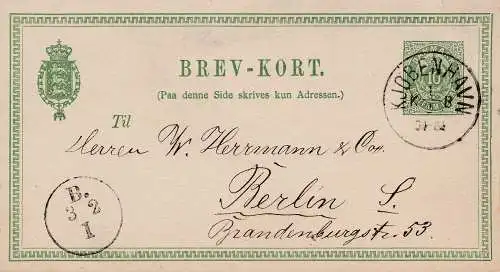 BREV-KORT.
(Paa denne Side skrives kun Adressen.)
KJØBENHAVN
K B
Til
Herren W. Herrmann & Co.
Berlin S.
Brandenburgstr. 53.
B.
3 2
I